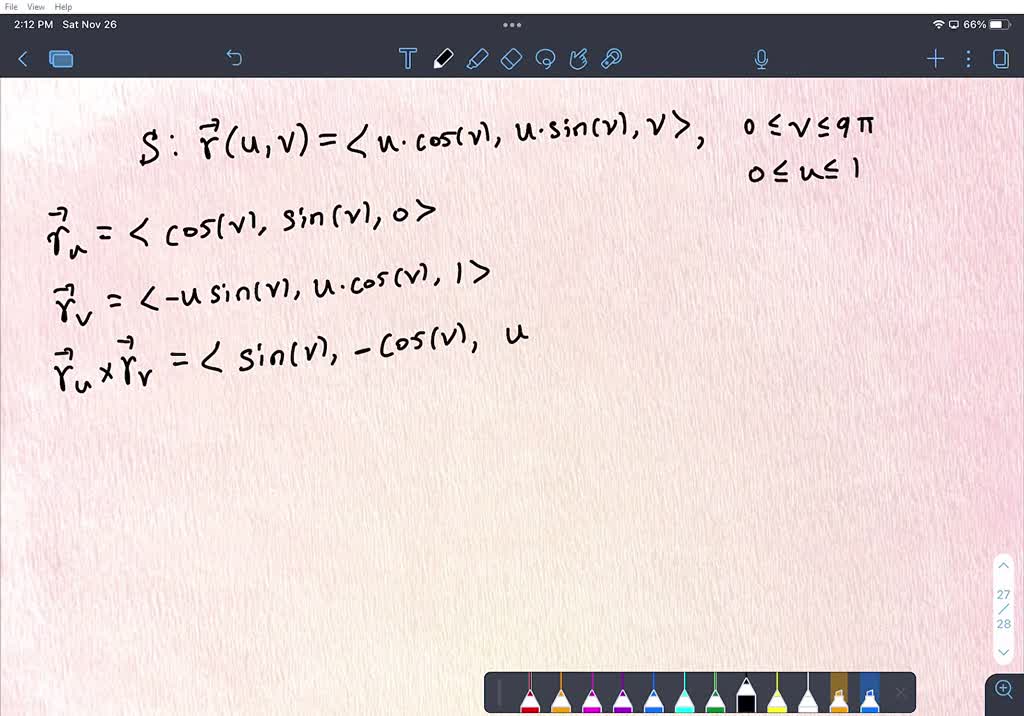 File View Help
2:12 PM Sat Nov 26
66%
T
S: r⃗(u,v) = <u·cos(v), u·sin(v), v>, 0 ≤ v ≤ 9π
0 ≤ u ≤ 1
r⃗_u = < cos(v), sin(v), 0 >
r⃗_v = <-u sin(v), u·cos(v), 1 >
r⃗_u × r⃗_v = < sin(v), -cos(v), u
27
/
28